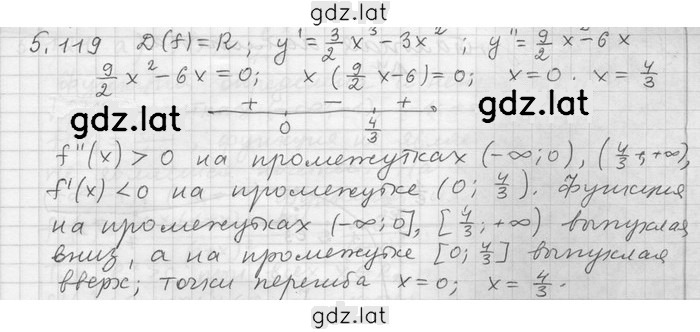 gdz.lat
5.119 D(f)=R; y'=3/2 x³-3x²; y''=9/2 x²-6x
9/2 x²-6x=0; x(9/2 x-6)=0; x=0. x=4/3
gdz.lat
+ - +
0 4/3
f''(x)>0 на промежутках (-∞;0), (4/3;+∞),
f'(x)<0 на промежутке (0; 4/3). Функция
на промежутках (-∞;0], [4/3;+∞) выпуклая
вниз, а на промежутке [0; 4/3] выпуклая
вверх; точки перегиба x=0; x=4/3.
gdz.lat
gdz.lat